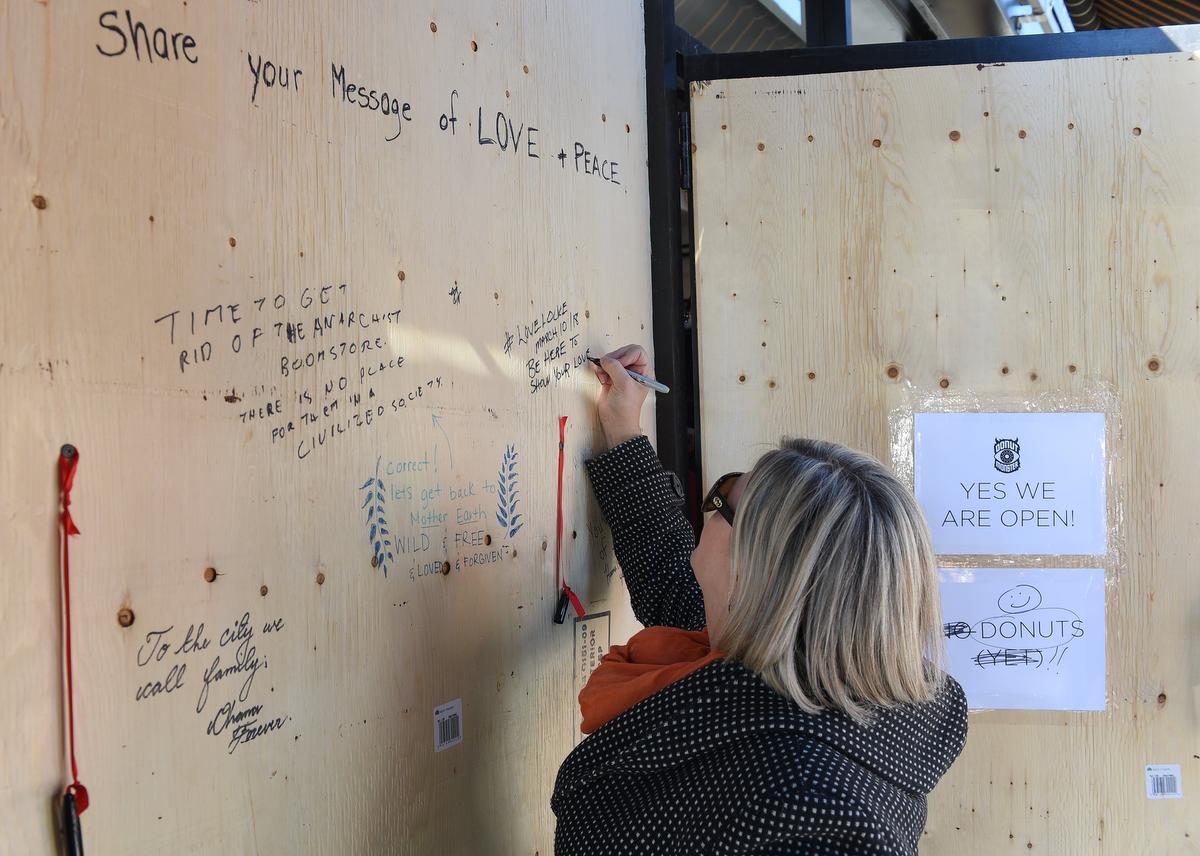 Share your Message of LOVE + PEACE
TIME TO GET
RID OF THE ANARCHIST
BOOMSTORE.
THERE IS NO PLACE
FOR THEM IN A
CIVILIZED SOCIETY.
# LOVELOCKE
MARCH 10/18
BE HERE TO
SHOW YOUR LOVE
correct!
lets get back to
Mother Earth
WILD & FREE
& LOVED & FORGIVEN
To the city we
call family;
Ohana
Forever.
DONUT
MONSTER
YES WE
ARE OPEN!
DONUTS
(YET)!!